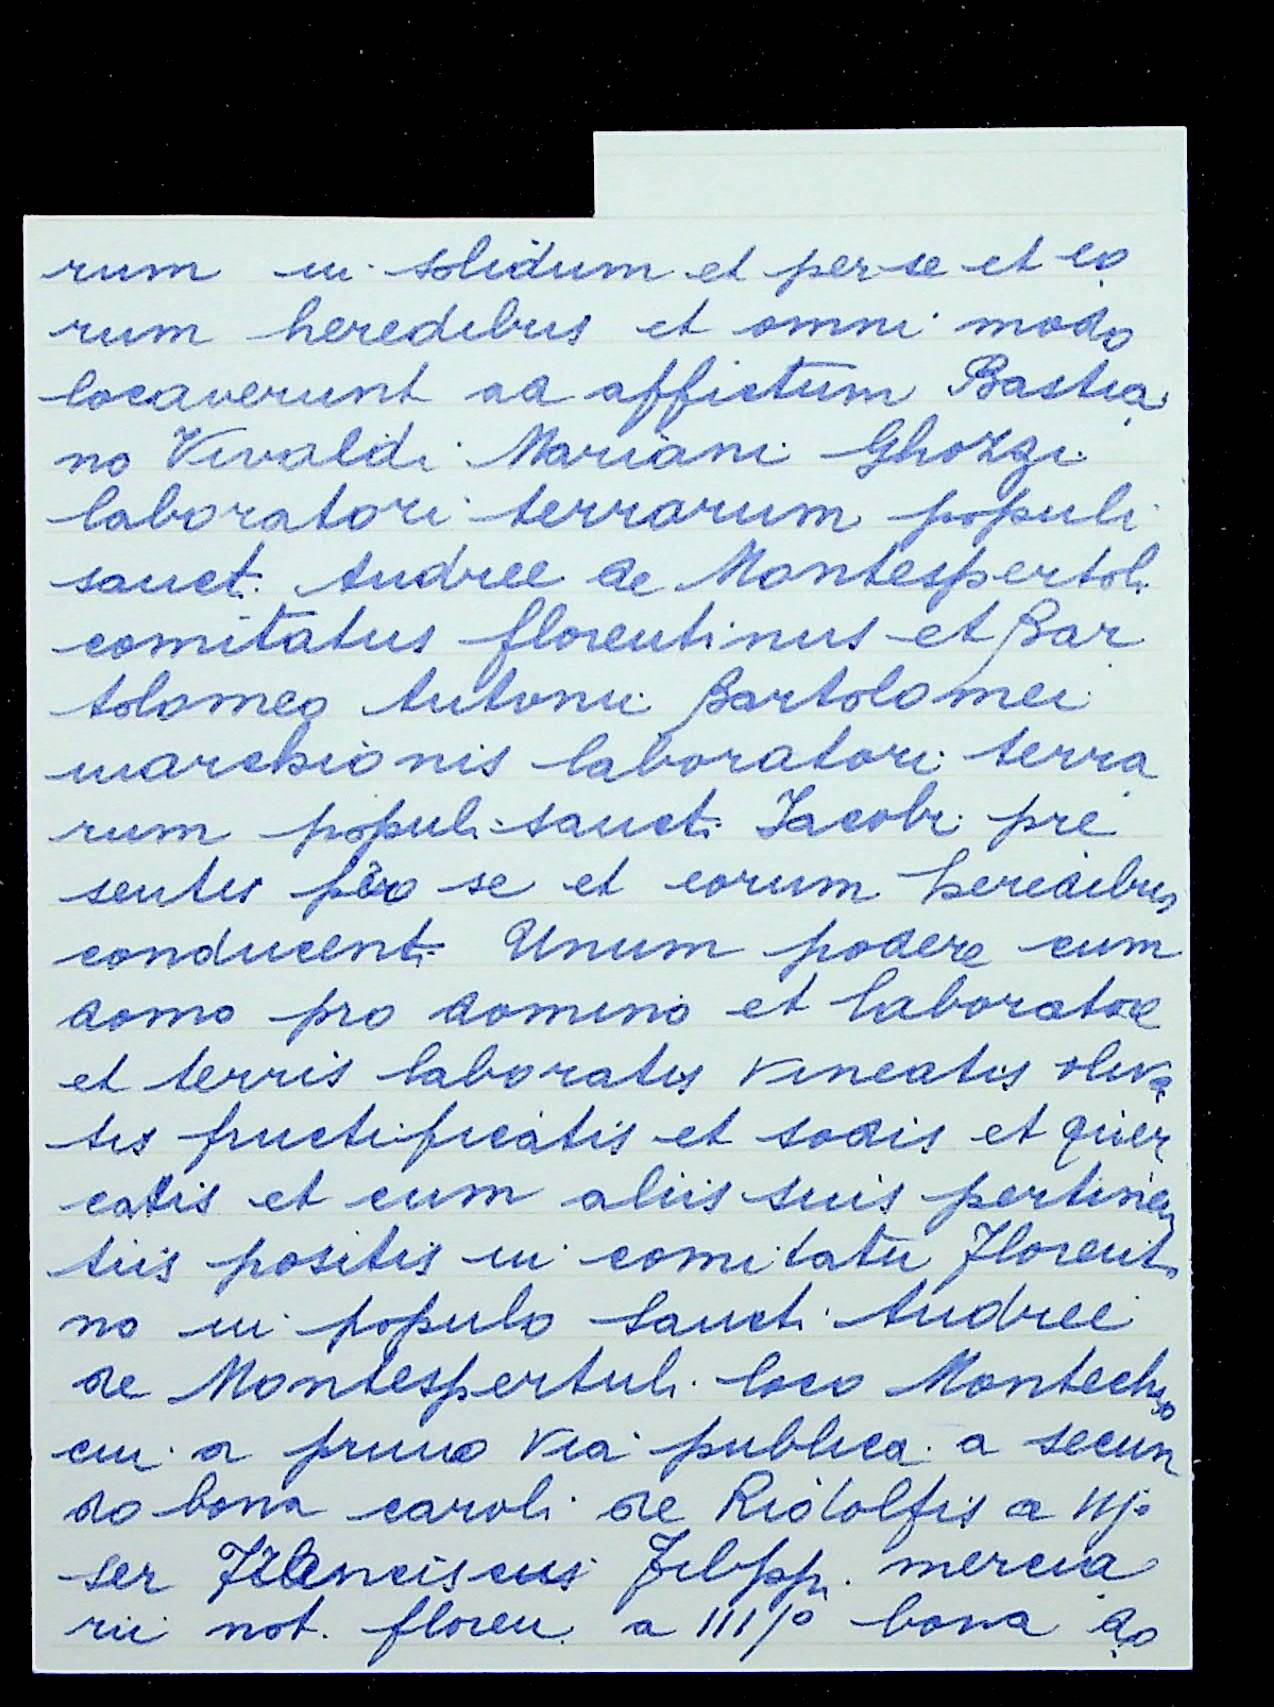 rum in solidum et per se et eo
rum heredibus et omni modo
locaverunt ad affictum Bastia
no Vivaldi Mariani Ghozzi
laboratori terrarum populi
sancti Andree de Montespertoli
comitatus florentinus et Bar
tolomeo Antonii Bartolomei
marchionis laboratori terra
rum populi sancti Jacobi pre
sentis pro se et eorum heredibus
conducenti Unum podere cum
domo pro domino et laboratore
et terris laboratis vineatis oliva
tis fructificatis et sodis et quer
catis et cum aliis suis pertinen
tiis positis in comitatu Florenti
no in populo Sancti Andree
de Montespertuli loco Montechio
cui a primo via publica a secun
do bona caroli de Ridolfis a IIJo
ser Franciscus Filippi mercia
rii not. floren. a IIIJo bona do